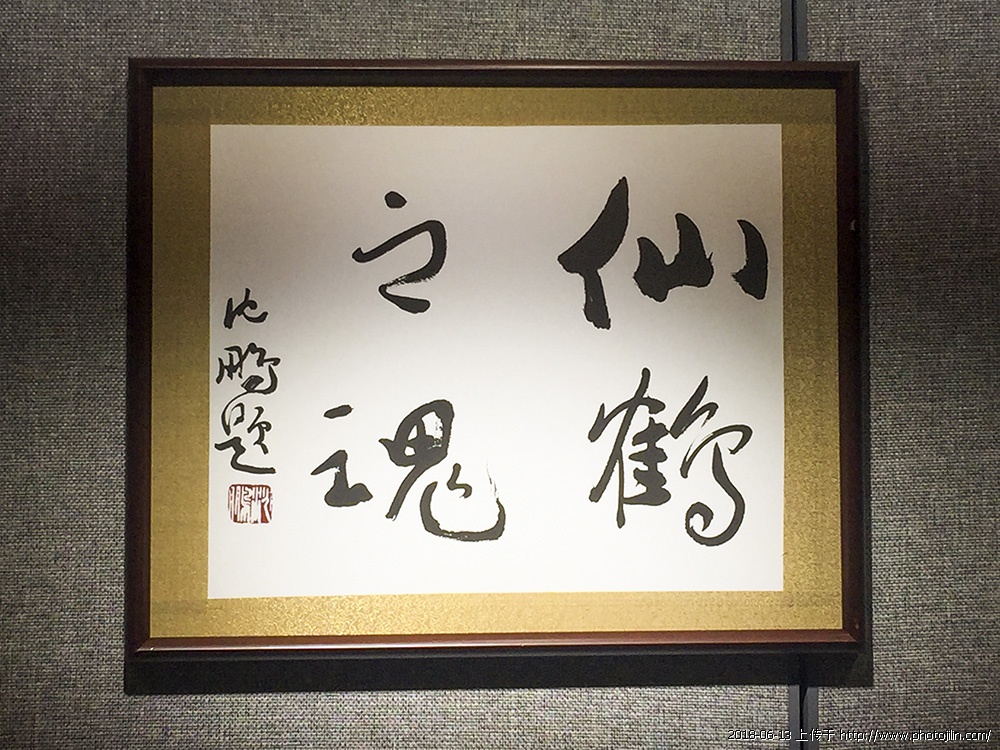 仙鹤
之魂
沈鹏题
2018-06-13 上传于 http://www.photojilin.com/